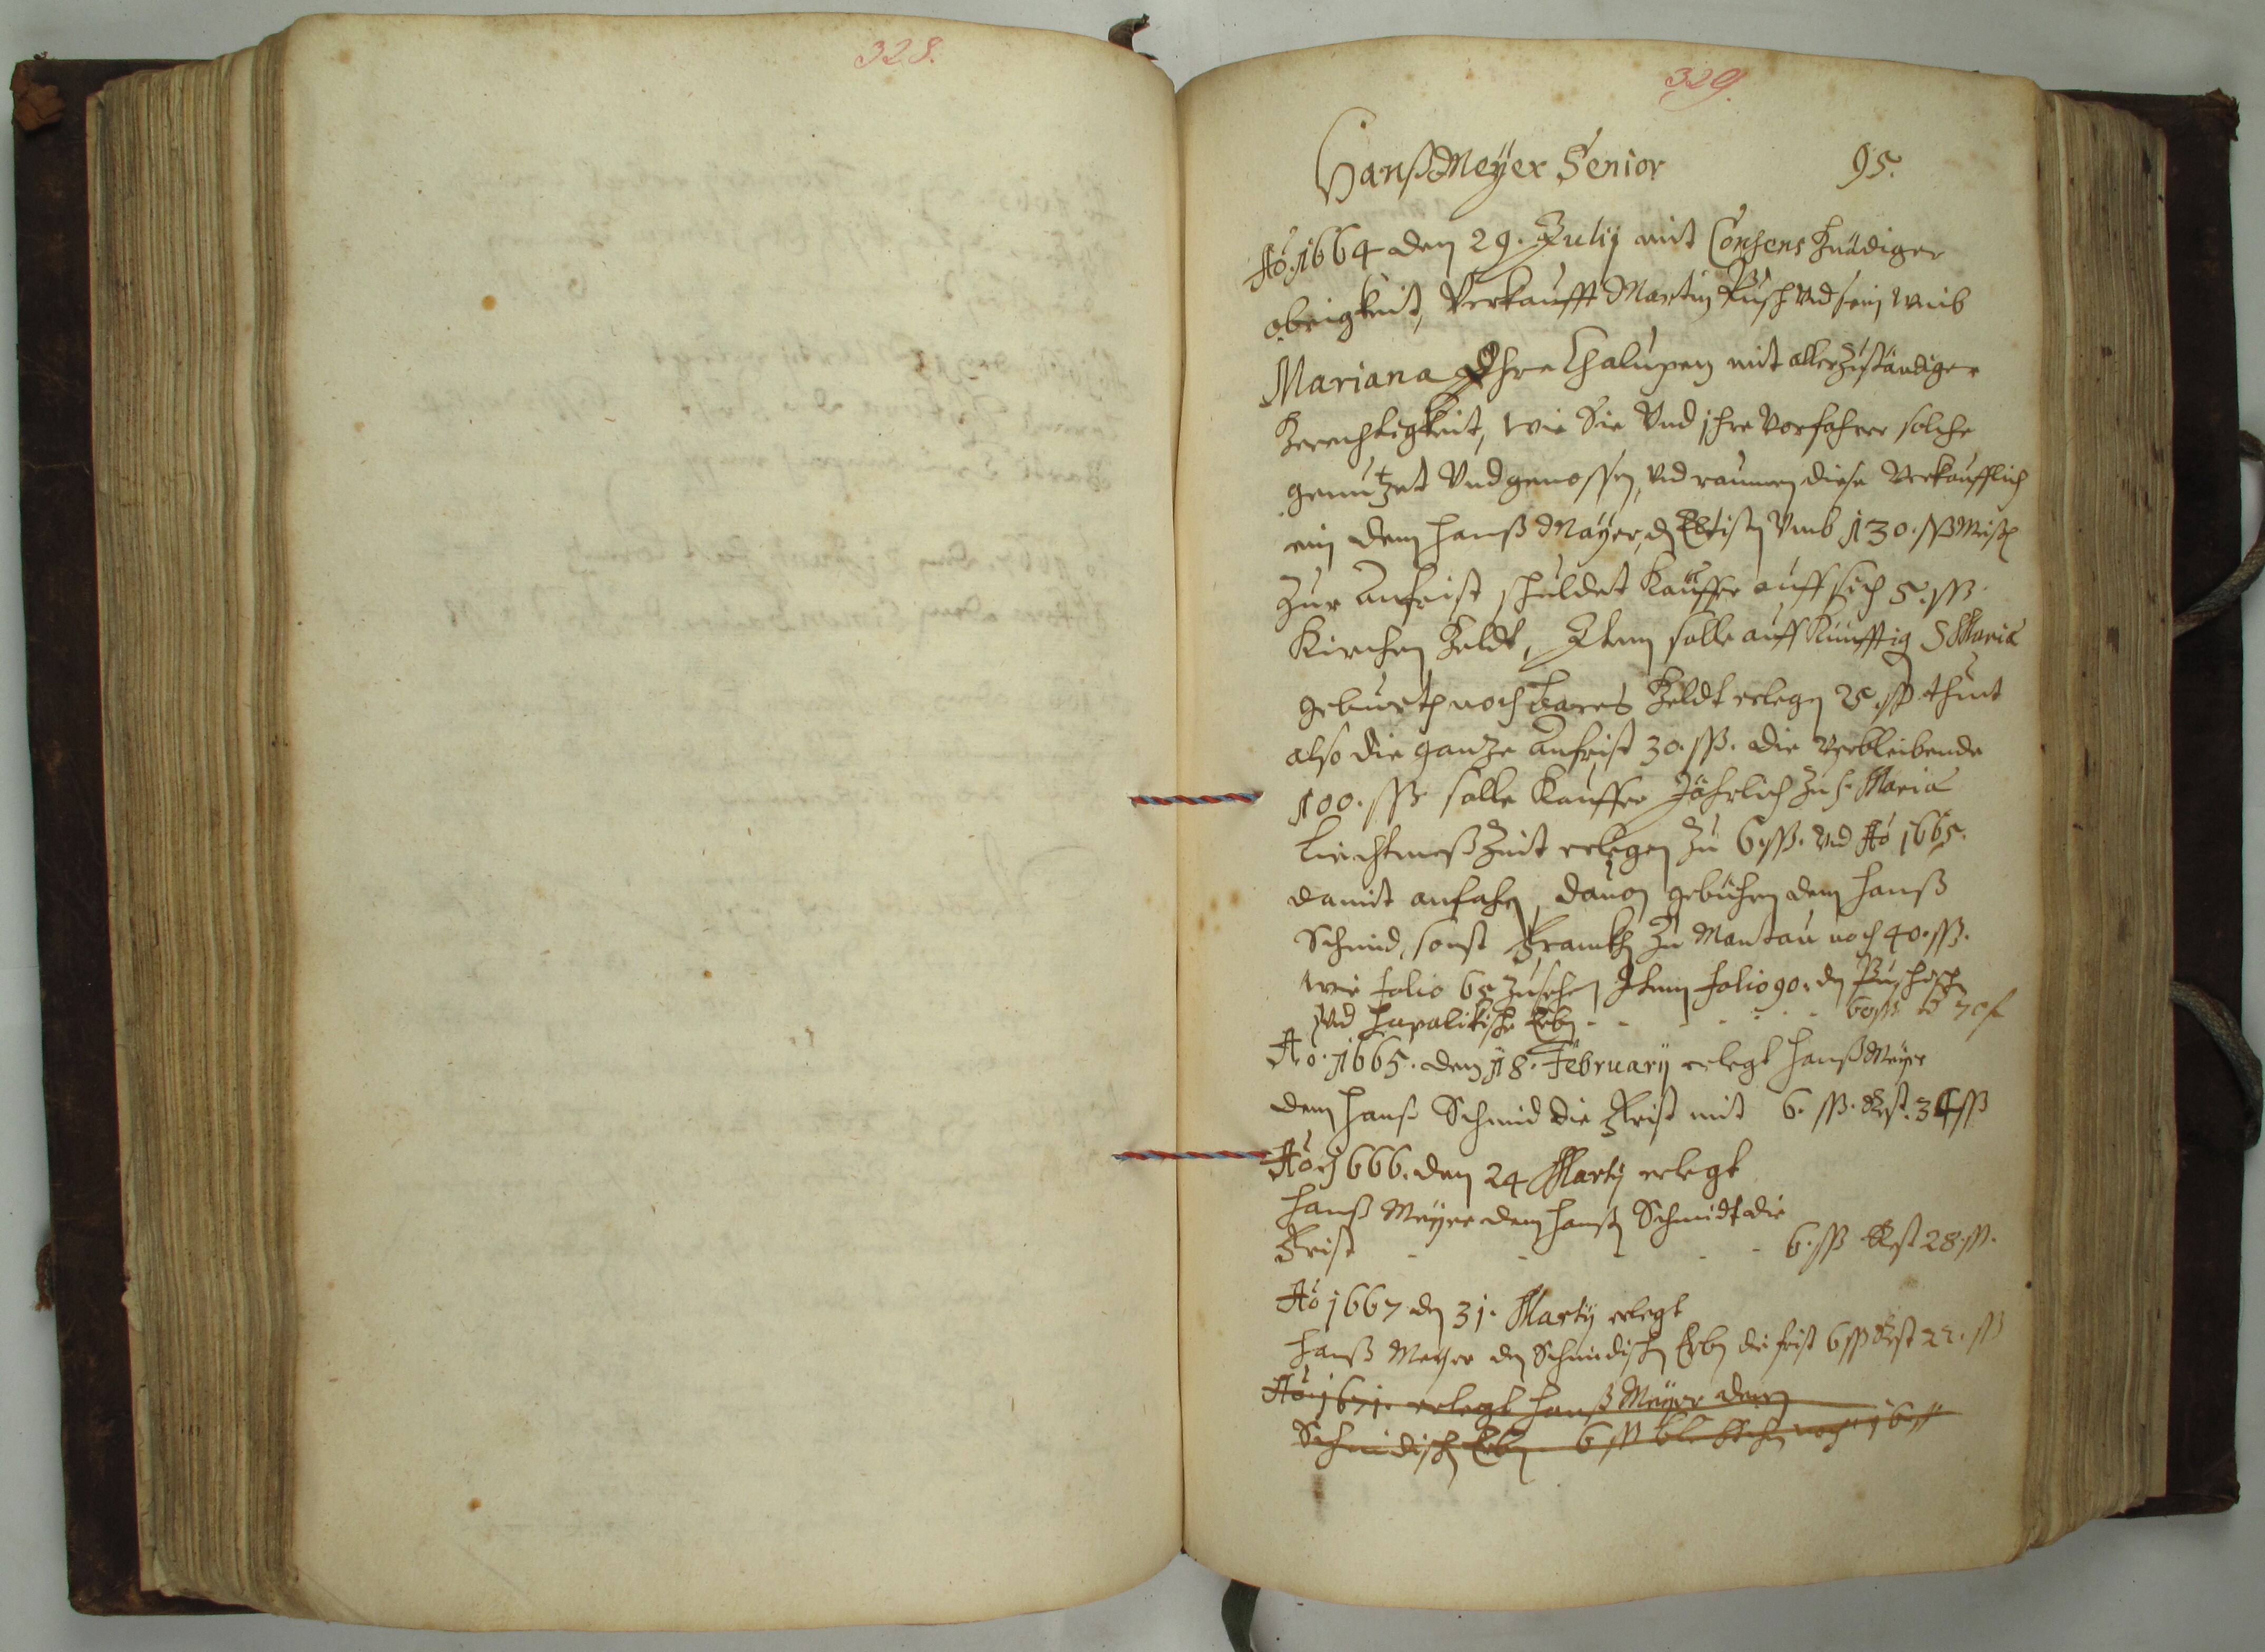 328.
329.
Hanß Meÿer Senior 95.
Aõ. 1664 den 29. Julij mit Consens Gnädiger
obrigkeit, Verkaufft Martin Pusch vnd sein weib
Mariana Ihre Chalupen mit aller Zuständiger
Gerechtigkeit, wie Sie Vnd ihre Vorfahrer solche
genutzet Vnd genossen, vnd raumen diese Verkaufflich
ein dem Hanß Mayer, d Eltisten Vmb 130. ßß Meiß
Zur Anfrist schuldet Kauffer auff sich 5. ßß
Kirchen Geldt, Item solle auff Künfftig S Maria
geburth noch bares Geldt erlegen 25 ßß thuet
also die gantze Anfrist 30. ßß. die Verbleibende
100. ßß solle Kauffer Jährlich zu S. Maria
Liechtmeß Zeit erlegen zu 6 ßß. vnd Aõ 1665.
damit anfahen, dauon gebühren dem Hanß
Schmid, sonst Frankh zu Mantau noch 40. ßß.
wie folio 65 zusehen Item folio 90. den
Vnd Erben - - - - - 60 ßß
Aõ. 1665. den 18. February erlegt Hanß Meyer
dem Hanß Schmid die Frist mit 6. ßß. Rest. 34 ßß
Aõ 1666. den 24 Marty erlegt
Hanß Meyer dem Hanß Schmidt die
Frist - - - - 6. ßß Rest 28 ßß.
Aõ 1667 den 31. Marty erlegt
Hanß Meyer den Schmidischen Erben die frist 6 ßß Rest 22. ßß
Aõ 1671. erlegt Hanß Meyer denen
Schmidischen Erben 6 ßß noch 16 ßß